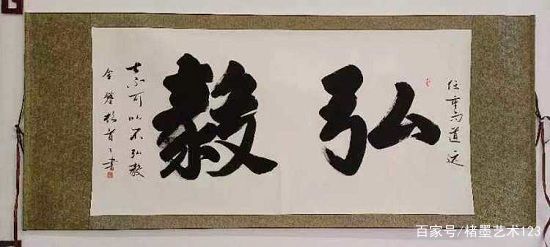 任重而道远
弘毅
士不可以不弘毅
书
百家号/楮墨艺术123